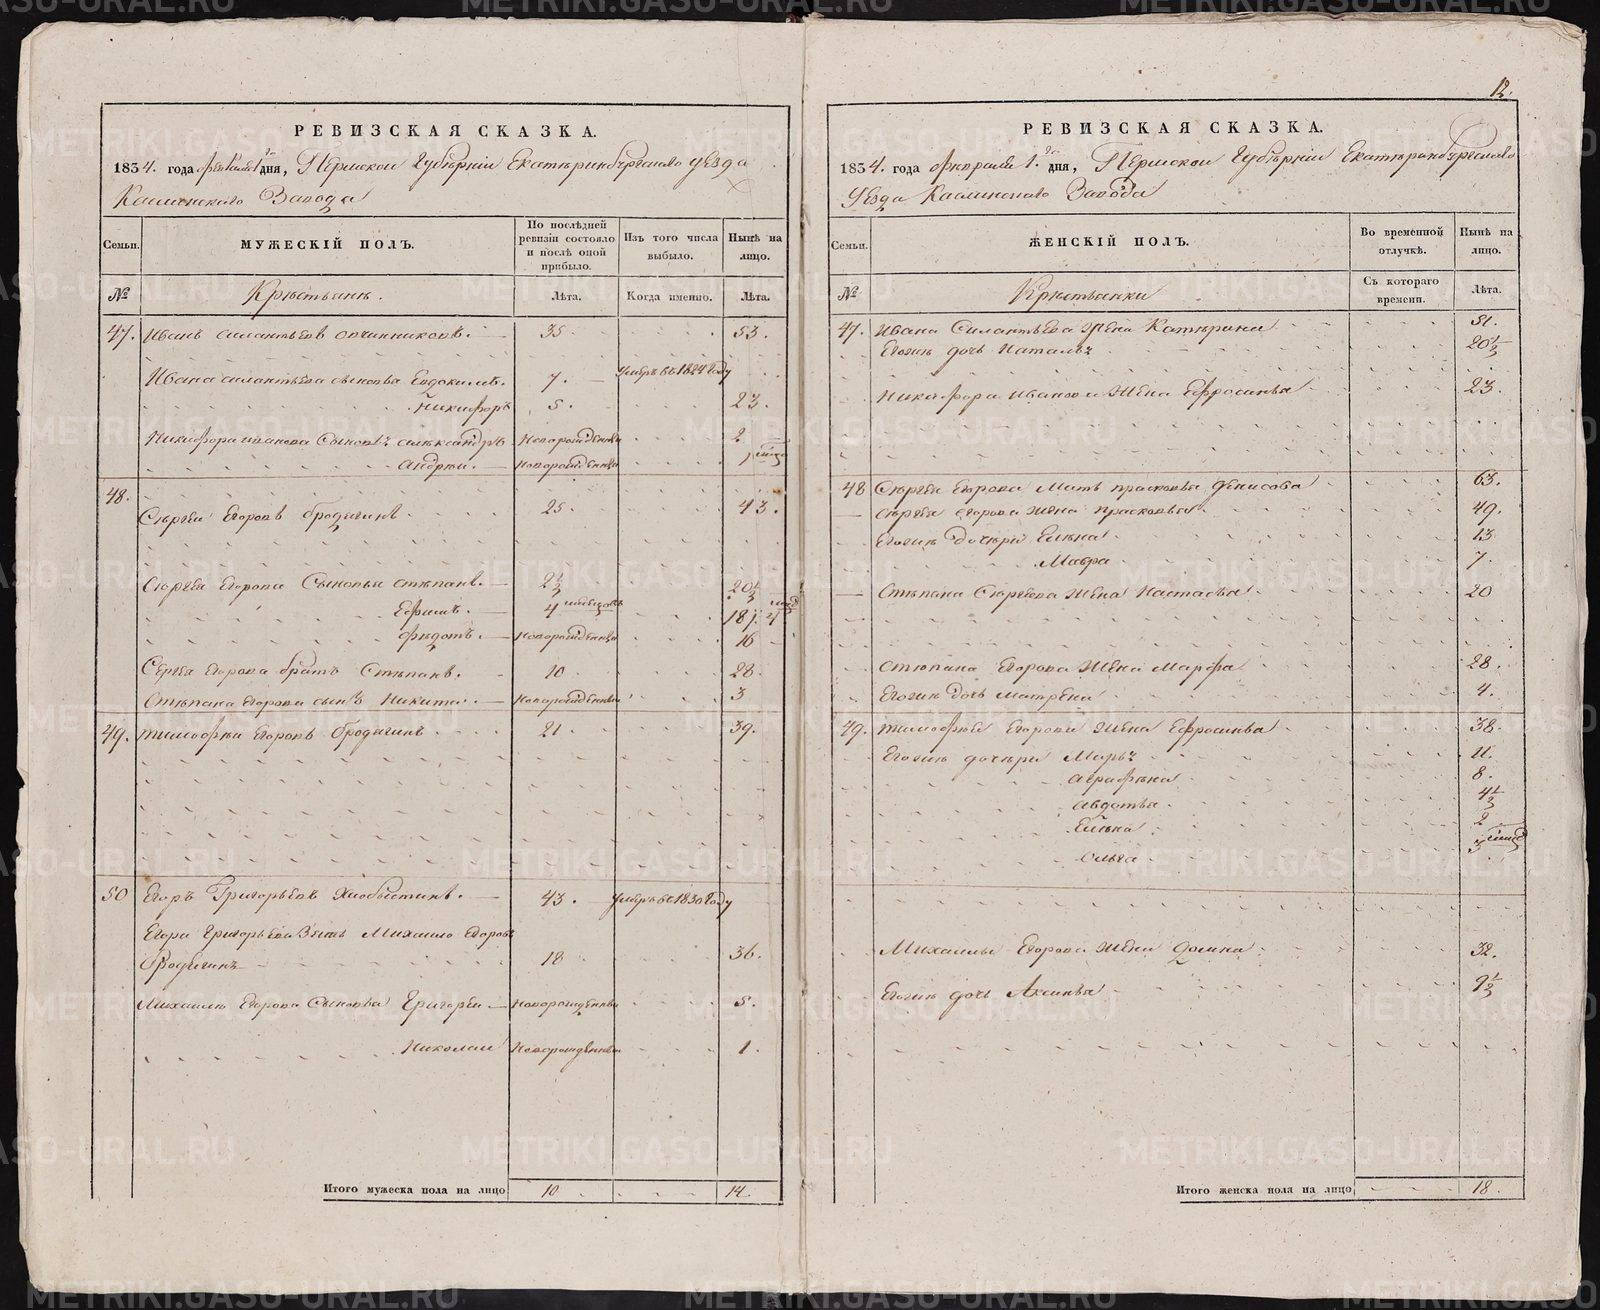 12.
РЕВИЗСКАЯ СКАЗКА.
1834. года Февраля 1го дня, Пермской Губерніи Екатеринбургскаго уезда
Каслинскаго Завода
Семьи.
МУЖЕСКІЙ ПОЛЪ.
По послѣдней ревизіи состояло и послѣ оной прибыло.
Изъ того числа выбыло.
Нынѣ на лицо.
№
Крестьяне.
Лѣта.
Когда именно.
Лѣта.
47. Иванъ Силантьевъ Овчинниковъ. 35 53.
Ивана Силантьева сыновья Евдокимъ. 7. умеръ въ 1824 году
Никифоръ 5. 23.
Никифора Иванова Сыновья Александръ Новорожденны 2
Андреи. Новорожденны
48.
Сергеи Егоровъ Бродягинъ 25 43.
Сергея Егорова Сыновья Степанъ. 2½ 20½
Ефимъ. 4 месецовъ 18
Федотъ. Новорожденны 16
Сергея Егорова братъ Степанъ. 10 28.
Степана Егорова сынъ Никита. Новорожденны 3
49. Тимофеи Егоровъ Бродягинъ 21. 39.
50 Егоръ Григорьевъ 43. умеръ въ 1830 году
Егора Григорьева Зять Михаило Егоровъ
Бродягинъ 18 36.
Михаилы Егорова Сыновья Григореи Новорожденны 5.
Николаи Новорожденны 1.
Итого мужеска пола на лицо 10 14.
РЕВИЗСКАЯ СКАЗКА.
1834. года Февраля 1го дня, Пермской Губерніи Екатеринбургскаго
Уезда Каслинскаго Завода
Семьи.
ЖЕНСКІЙ ПОЛЪ.
Во временной отлучкѣ.
Нынѣ на лицо.
№
Крестьянки
Съ котораго времени.
Лѣта.
47. Ивана Силантьева Жена Катерина 51.
Егоже дочь Наталья 20½
Никифора Иванова Жена Ефросинья 23.
48 Сергея Егорова Мать Прасковья Денисова 63.
Сергея Егорова жена Прасковья. 49.
Егоже Дочери Елена 13
Мавра 7.
Степана Сергеева Жена Настасья 20
Степана Егорова Жена Марфа 28.
Егоже Дочь Матрена 4.
49. Тимофея Егорова Жена Ефросинья 38.
Егоже дочери Марья 11.
Аграфена 8.
Авдотья. 4½
Елена 2
Ольга
Михаилы Егорова Жена Домна 32.
Егоже дочь Аксинья 9½
Итого женска пола на лицо 18.
METRIKI.GASO-URAL.RU